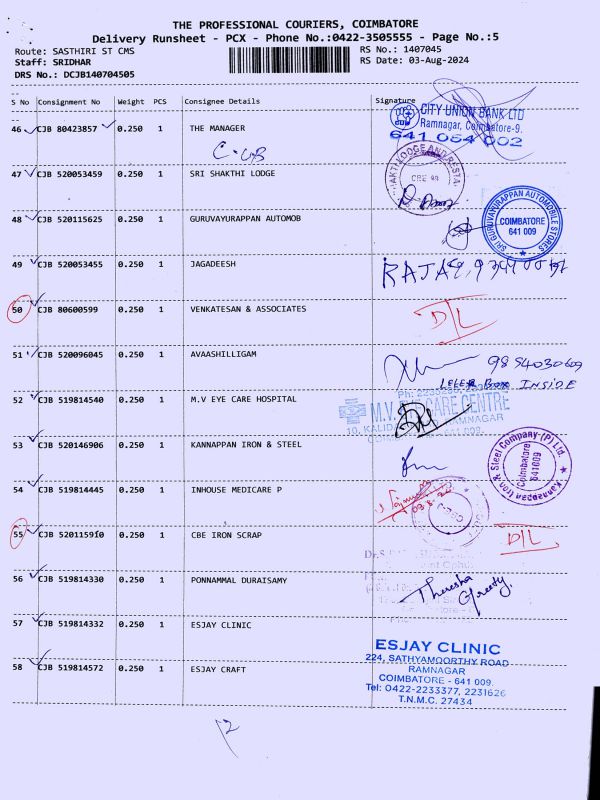 THE PROFESSIONAL COURIERS, COIMBATORE
Delivery Runsheet - PCX - Phone No.:0422-3505555 - Page No.:5
Route: SASTHIRI ST CMS
RS No.: 1407045
Staff: SRIDHAR
RS Date: 03-Aug-2024
DRS No.: DCJB140704505
S No Consignment No Weight PCS Consignee Details Signature
46 CJB 80423857 0.250 1 THE MANAGER
C.U.B
CITY UNION BANK LTD
Ramnagar, Coimbatore-9.
641 054 002
47 CJB 520053459 0.250 1 SRI SHAKTHI LODGE
48 CJB 520115625 0.250 1 GURUVAYURAPPAN AUTOMOB
SRI GURUVAYURAPPAN AUTOMOBILE STORES
COIMBATORE
641 009
49 CJB 520053455 0.250 1 JAGADEESH
50 CJB 80600599 0.250 1 VENKATESAN & ASSOCIATES D/L
51 CJB 520096045 0.250 1 AVAASHILLIGAM
9854030609
LETER BOX INSIDE
52 CJB 519814540 0.250 1 M.V EYE CARE HOSPITAL
M.V. EYE CARE CENTRE
53 CJB 520146906 0.250 1 KANNAPPAN IRON & STEEL
Kannappan Iron & Steel Company (P) Ltd.
Coimbatore
641009
54 CJB 519814445 0.250 1 INHOUSE MEDICARE P
55 CJB 520115910 0.250 1 CBE IRON SCRAP D/L
56 CJB 519814330 0.250 1 PONNAMMAL DURAISAMY
57 CJB 519814332 0.250 1 ESJAY CLINIC
58 CJB 519814572 0.250 1 ESJAY CRAFT
ESJAY CLINIC
224, SATHYAMOORTHY ROAD
RAMNAGAR
COIMBATORE - 641 009.
Tel: 0422-2233377, 2231626
T.N.M.C. 27434
12